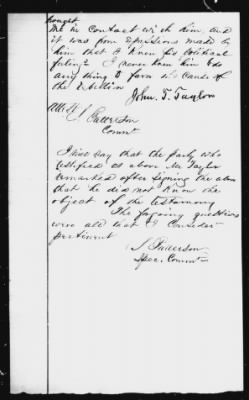 brought
me in contact with him, and
it was from expressions made by
him that I knew his political
feling? I never knew him to do
any thing to farm the Cause of
the rebellion
John. T. Taylor
Patterson
Comm
I will say that the party who
testified as above Mr Taylor
remarked after signing the above
that he did not know the
object of the testamony
The forgoing questions
were all that I Consider
pertinent
Patterson
Spec. Comm